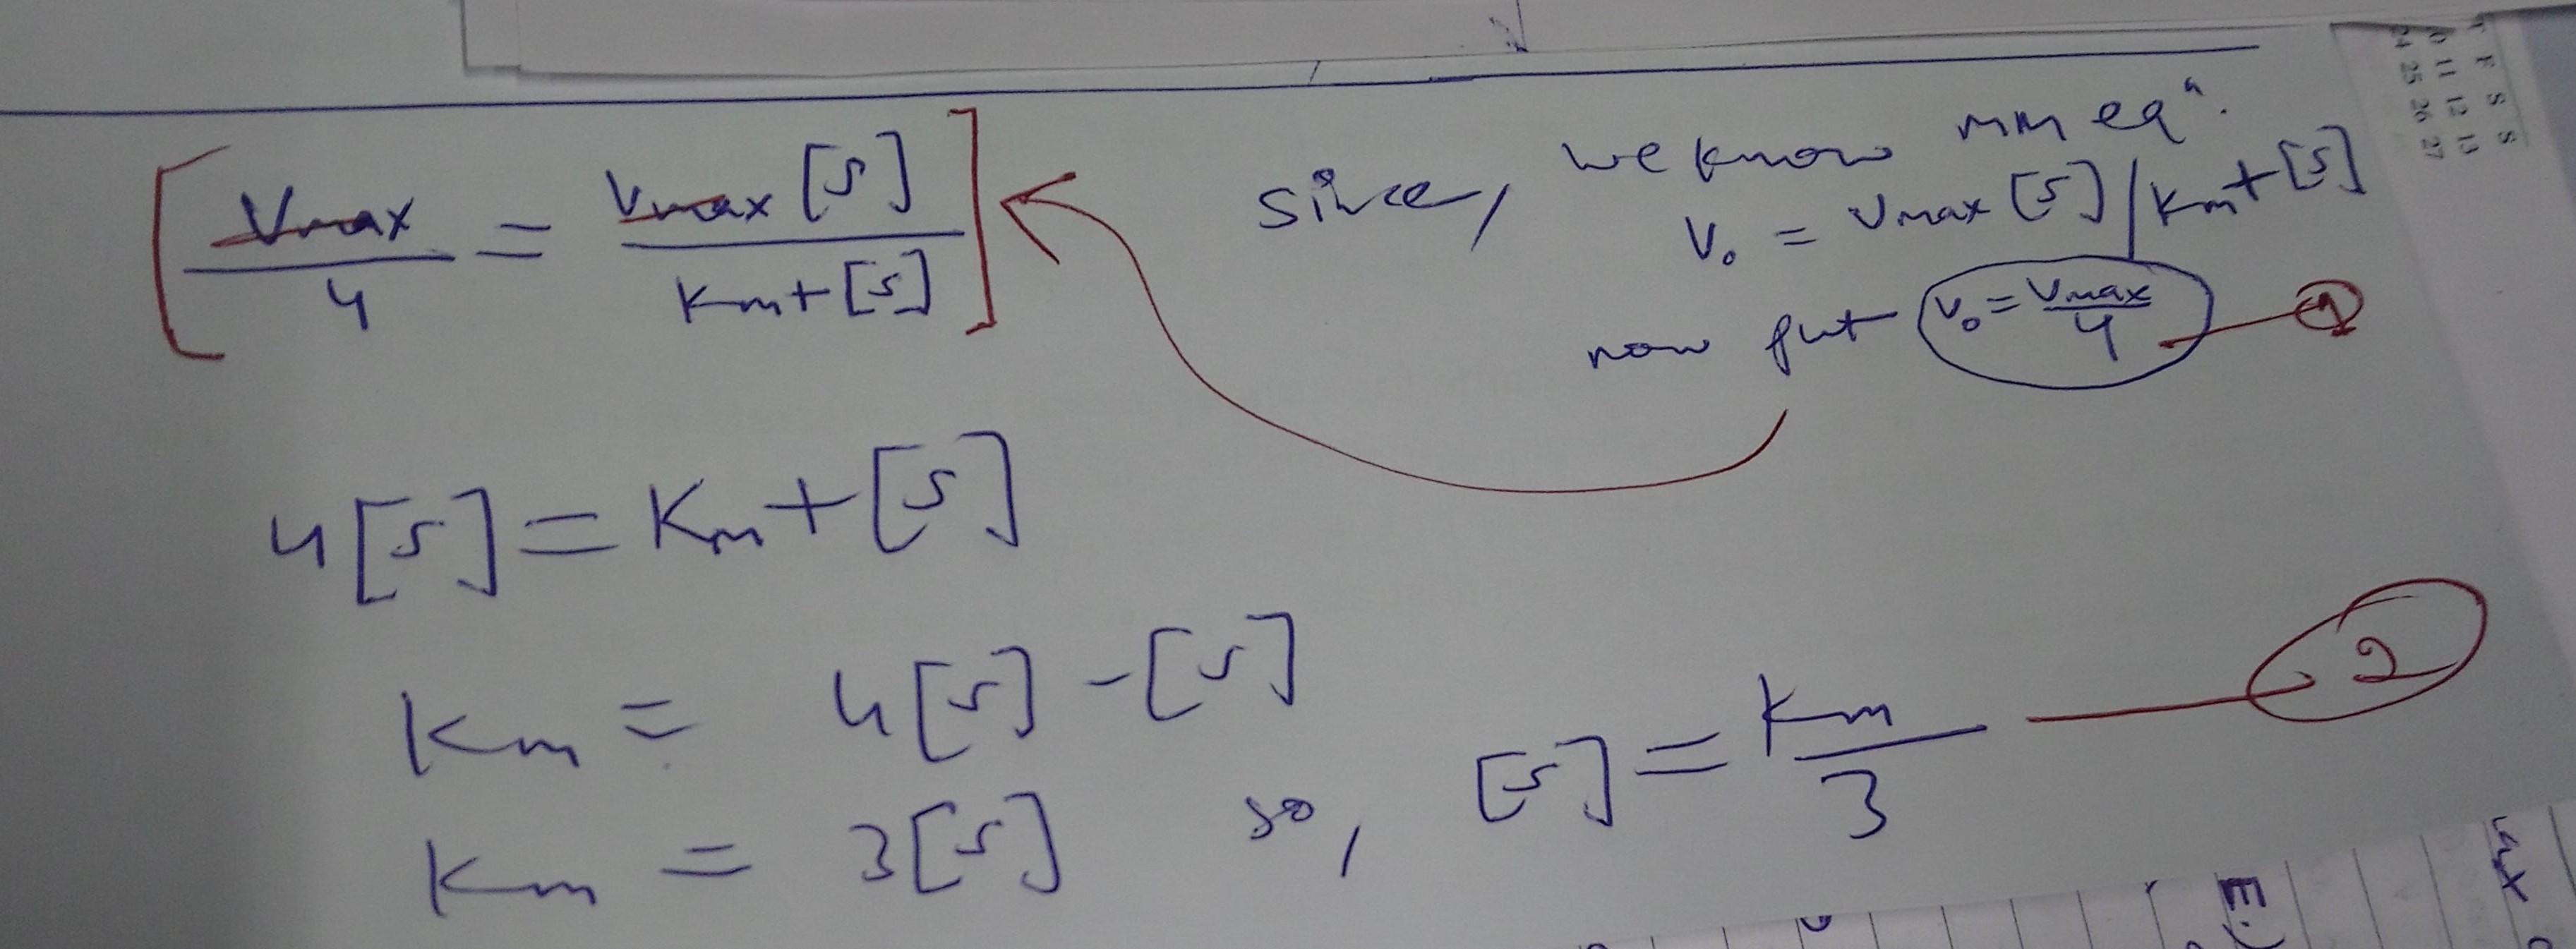 Since, we know MM eqⁿ.
V₀ = Vmax [S] / Km + [S]
now put V₀ = Vmax/4 — 1
[ Vmax/4 = Vmax [S] / Km + [S] ]
4[S] = Km + [S]
Km = 4[S] - [S]
Km = 3[S] so, [S] = Km/3 — 2
T F S S
11 12 13
24 25 26 27